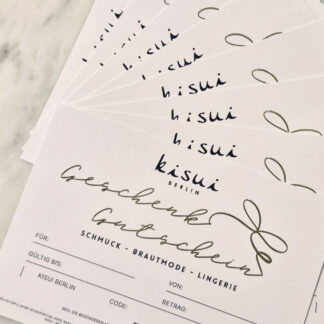 kisui
kisui
kisui
kisui
kisui
BERLIN
Geschenk
Gutschein
SCHMUCK - BRAUTMODE - LINGERIE
FÜR:
VON:
GÜLTIG BIS:
BETRAG:
KISUI BERLIN
CODE: